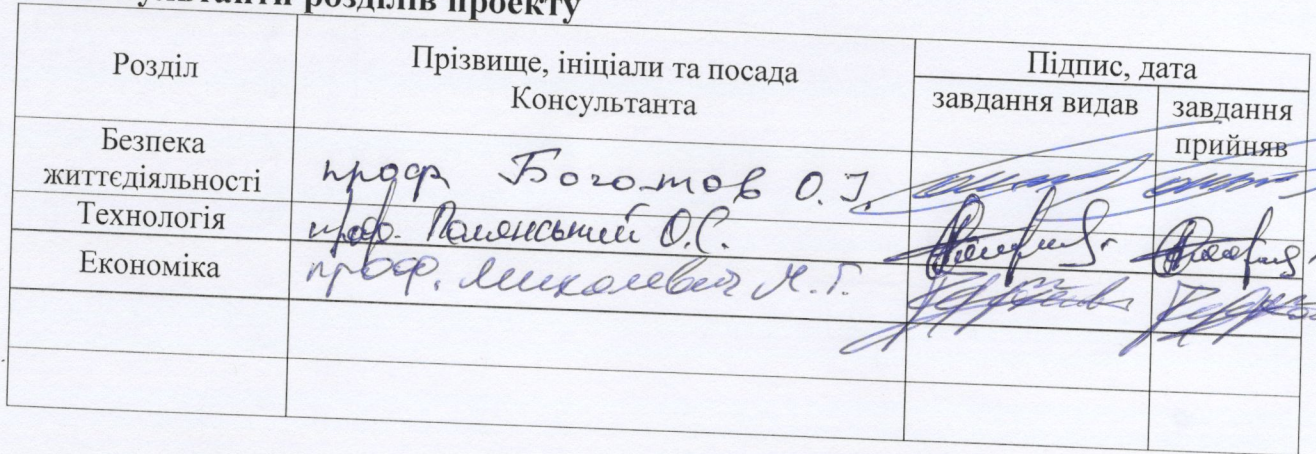 розділів проекту
Розділ
Прізвище, ініціали та посада
Консультанта
Підпис, дата
завдання видав
завдання
прийняв
Безпека
життєдіяльності
проф Богомов О.І.
Технологія
проф. Полянський О.С.
Економіка
проф.